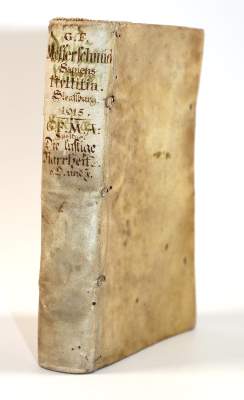 G. F.
Messerschmid
Sapiens
Stultitia.
Strassburg
1615.
G. F. M. A:
Die lustige
Narrheit.